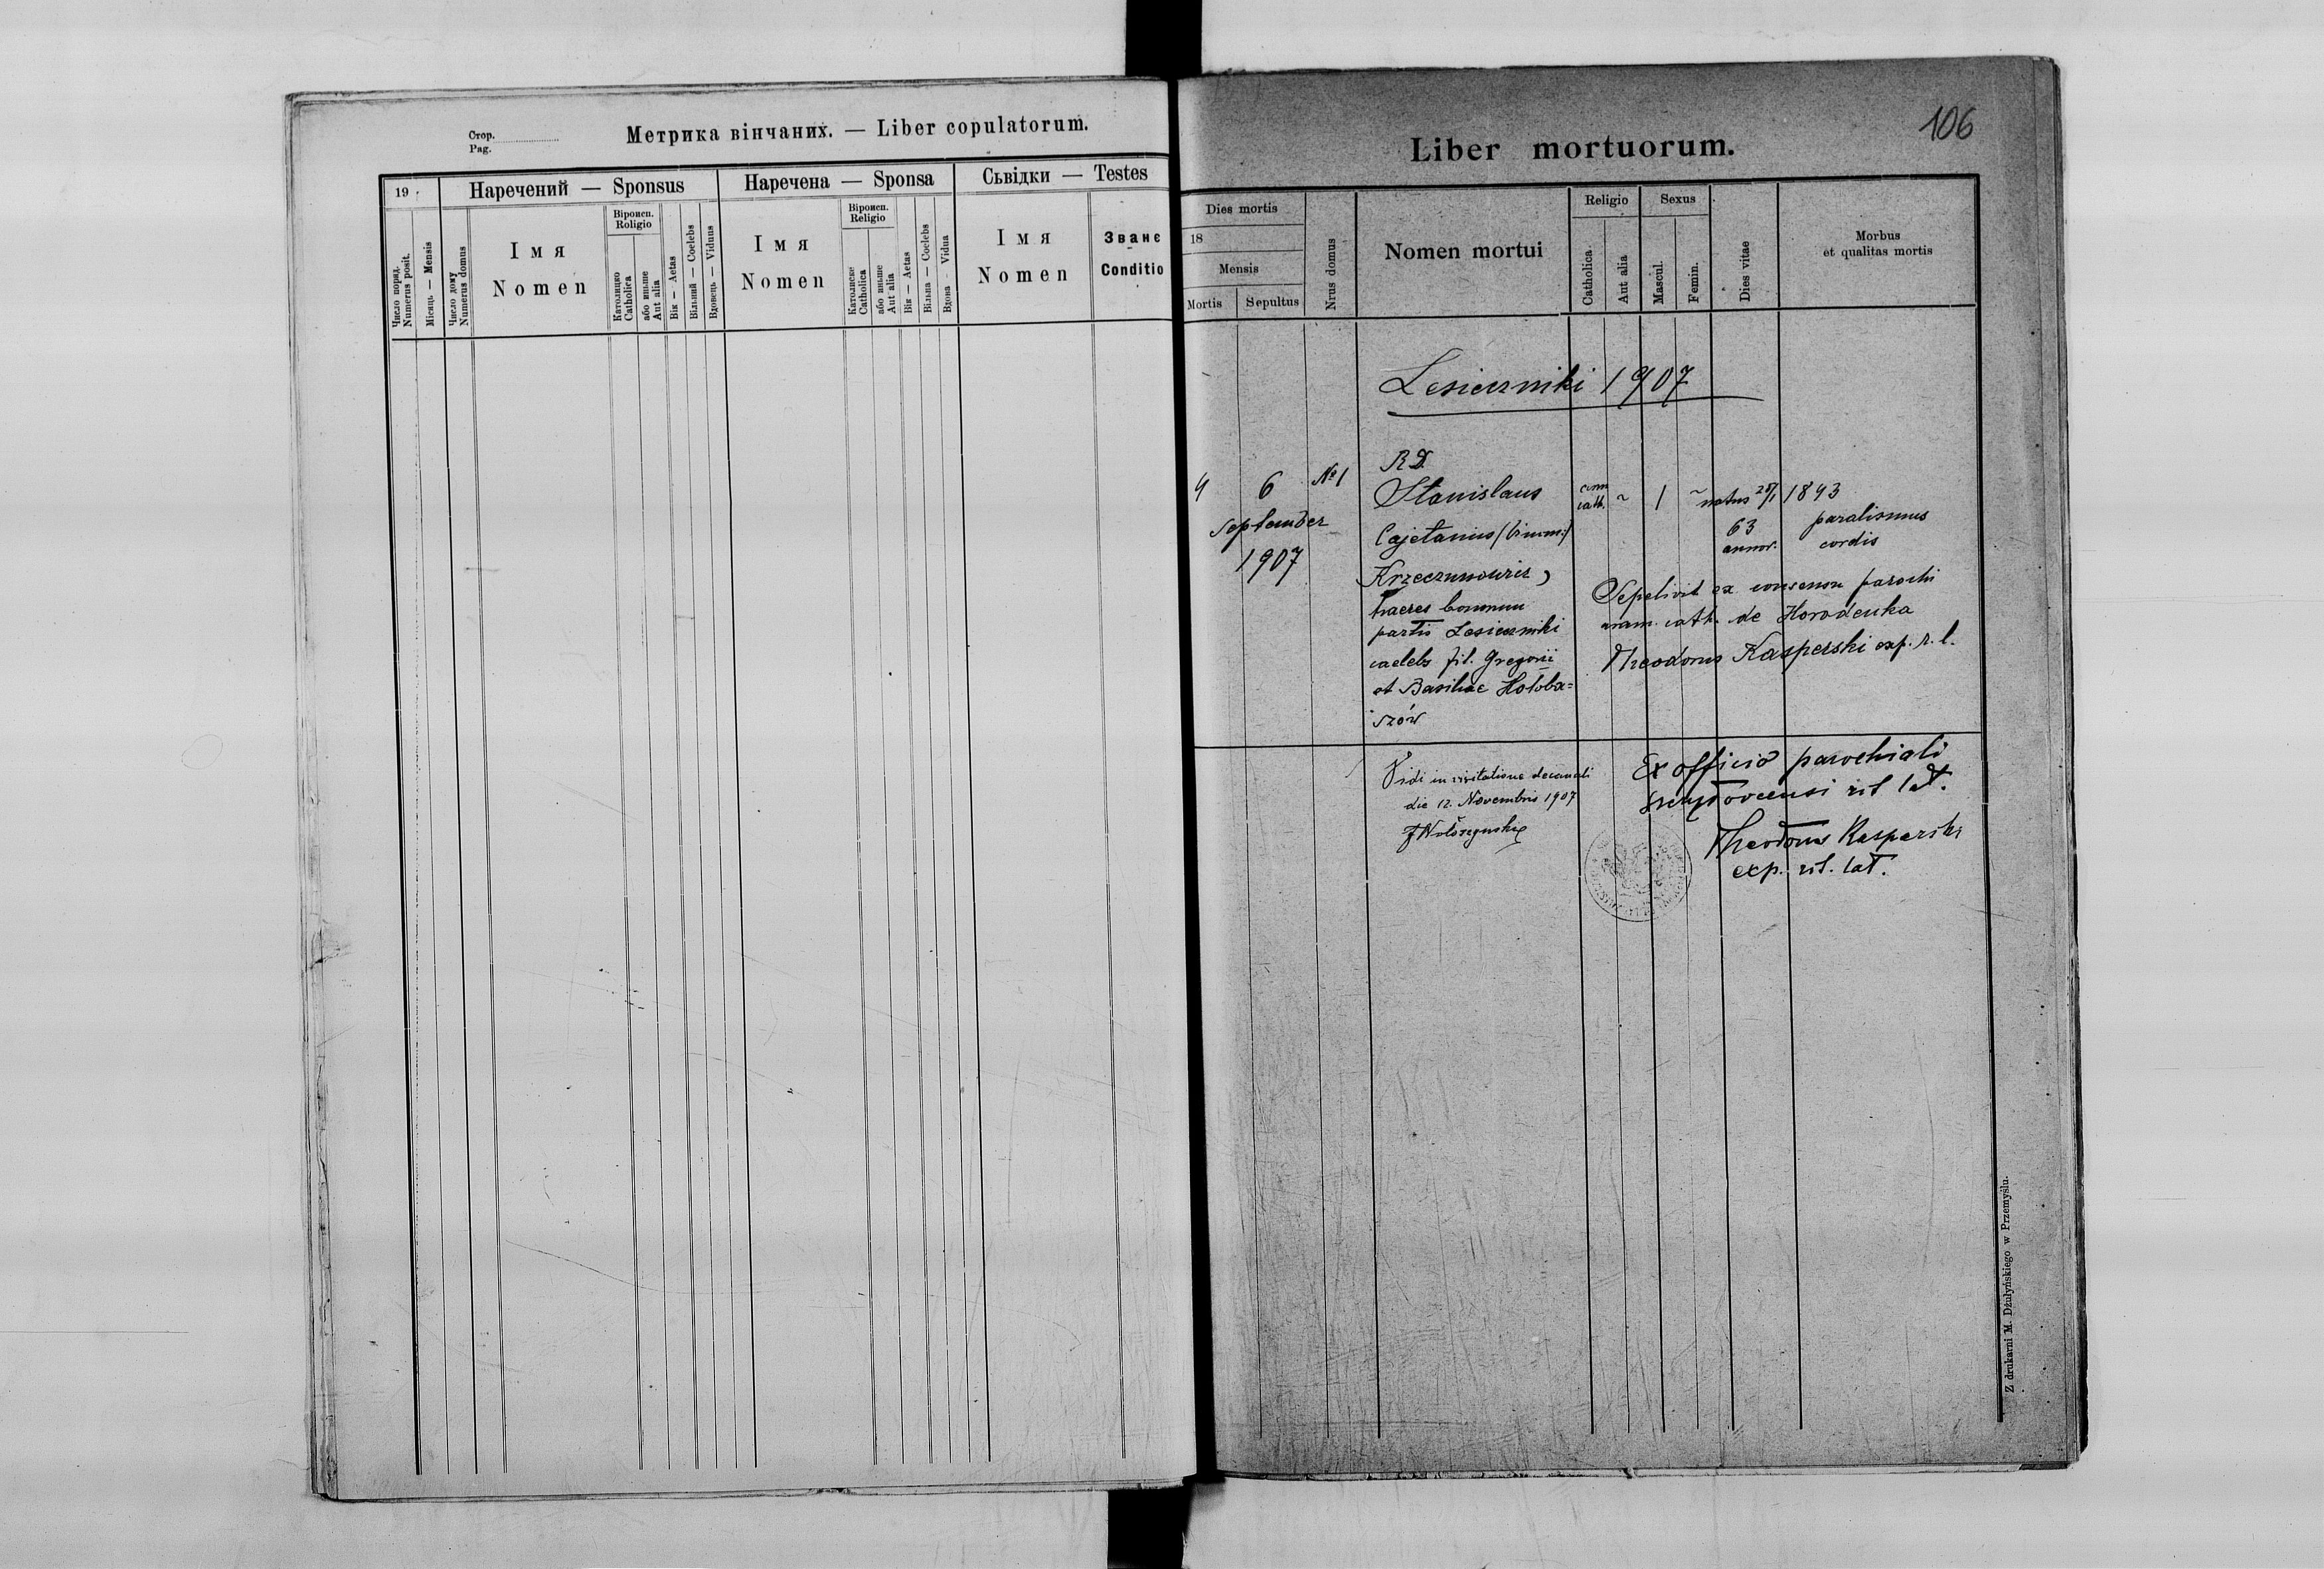 Стор.
Pag.
Метрика вінчаних. — Liber copulatorum.
19
Наречений — Sponsus
Наречена — Sponsa
Сьвідки — Testes
Число поряд.
Numerus posit.
Місяць — Mensis
Число дому
Numerus domus
Імя
Nomen
Віроисп.
Religio
Католицко
Catholica
або иньше
Aut alia
Вік — Aetas
Вільний — Coelebs
Вдовець — Viduus
Імя
Nomen
Віроисп.
Religio
Католиске
Catholica
або иньше
Aut alia
Вік — Aetas
Вільна — Coelebs
Вдова — Vidua
Імя
Nomen
Званє
Conditio
106
Liber mortuorum.
Dies mortis
18
Mensis
Mortis
Sepultus
Nrus domus
Nomen mortui
Religio
Catholica
Aut alia
Sexus
Mascul.
Femin.
Dies vitae
Morbus
et qualitas mortis
Lesieczniki 1907
4 6 No 1
september
1907
R D.
Stanislaus
Cajetanus
Krzeczunowicz,
haeres bonorum
partis Lesieczniki
caelebs fil. Gregorii
et Basiliae Hołoba=
szów
cath.
1
natus 28/1 1843
63
annor.
paralismus
cordis
Sepelivit ex consensu parochi
aram. cath. de Horodenka
Theodorus Kasperski exp. r. l.
Vidi in visitatione decanali
die 12. Novembris 1907
Ex officio parochiali
rit lat.
Theodorus Kasperski
exp. rit. lat.
Z drukarni M. Dżułyńskiego w Przemyślu.